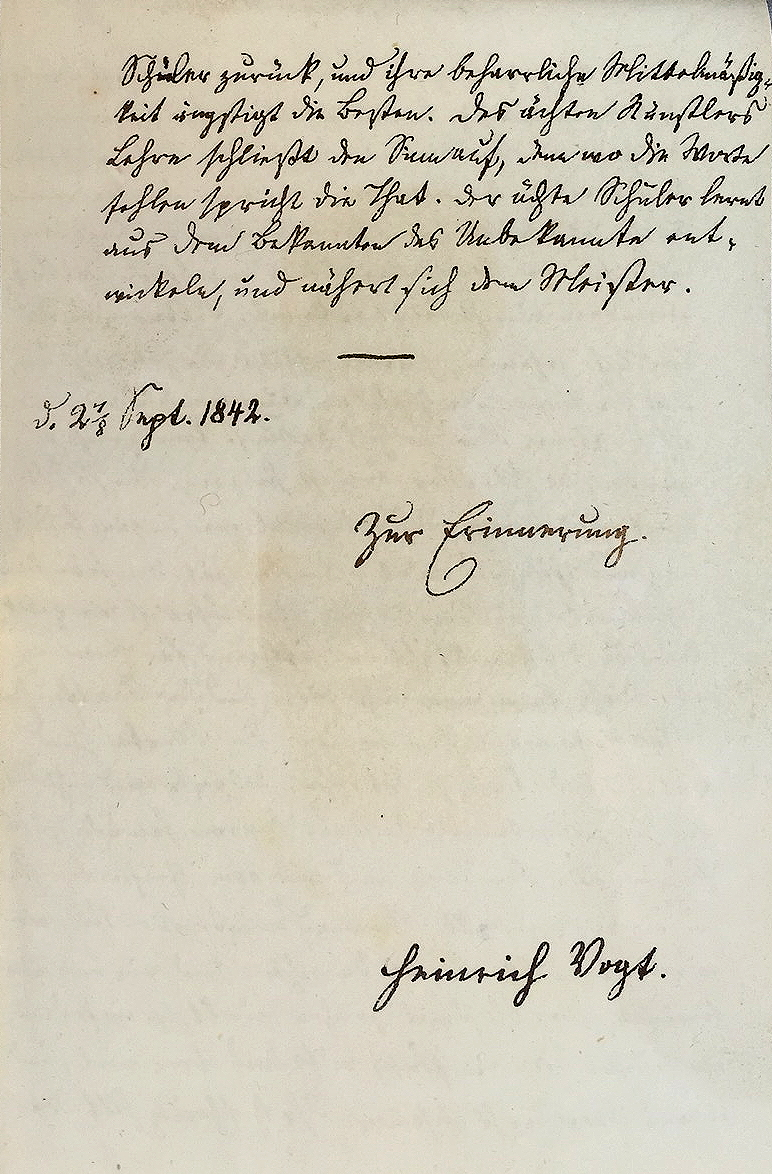 Schüler zurück, und ihre beharrliche Mittelmäßig-
keit ängstigt die Besten. Des ächten Künstlers
Lehre schließt den Sinn auf, denn wo die Worte
fehlen spricht die That. Der ächte Schüler lernt
aus dem Bekannten das Unbekannte ent-
wickeln, und nähert sich dem Meister.
d. 27/8 Sept. 1842.
Zur Erinnerung.
Heinrich Vogt.